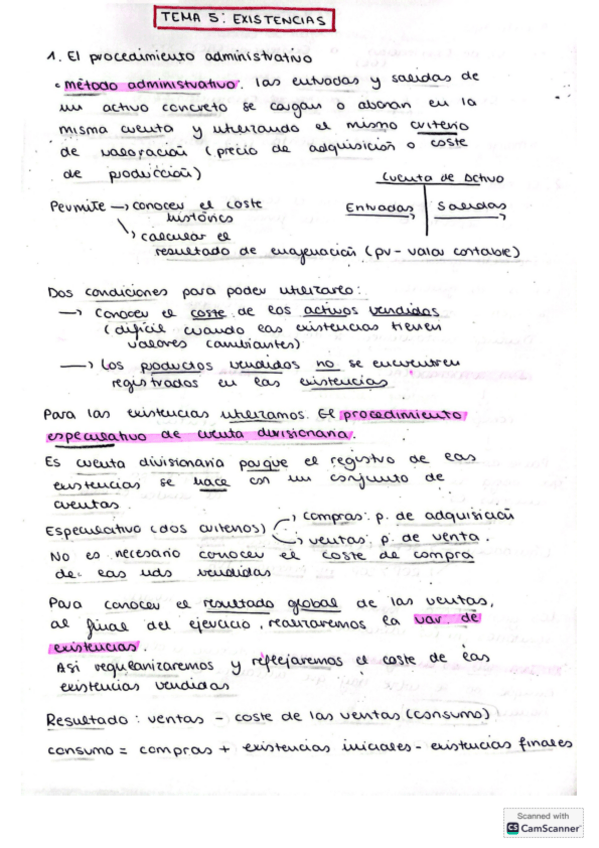 TEMA 5: EXISTENCIAS
1. El procedimiento administrativo
• método administrativo. las entradas y salidas de
un activo concreto se cargan o abonan en la
misma cuenta y utilizando el mismo criterio
de valoración (precio de adquisición o coste
de producción)
Cuenta de Activo
Entradas Salidas
Permite → conocer el coste
histórico
↘ calcular el
resultado de enajenación (pv - valor contable)
Dos condiciones para poder utilizarlo:
→ Conocer el coste de los activos vendidos
(difícil cuando las existencias tienen
valores cambiantes)
→ Los productos vendidos no se encuentren
registrados en las existencias
Para las existencias utilizamos. El procedimiento
especulativo de cuenta divisionaria.
Es cuenta divisionaria porque el registro de las
existencias se hace con un conjunto de
cuentas.
Especulativo (dos criterios) → compras: p. de adquisición
→ ventas: p. de venta.
No es necesario conocer el coste de compra
de las uds vendidas
Para conocer el resultado global de las ventas,
al final del ejercicio, realizaremos la var. de
existencias.
Así regularizaremos y reflejaremos el coste de las
existencias vendidas
Resultado: ventas - coste de las ventas (consumo)
consumo = compras + existencias iniciales - existencias finales
Scanned with
CS CamScanner